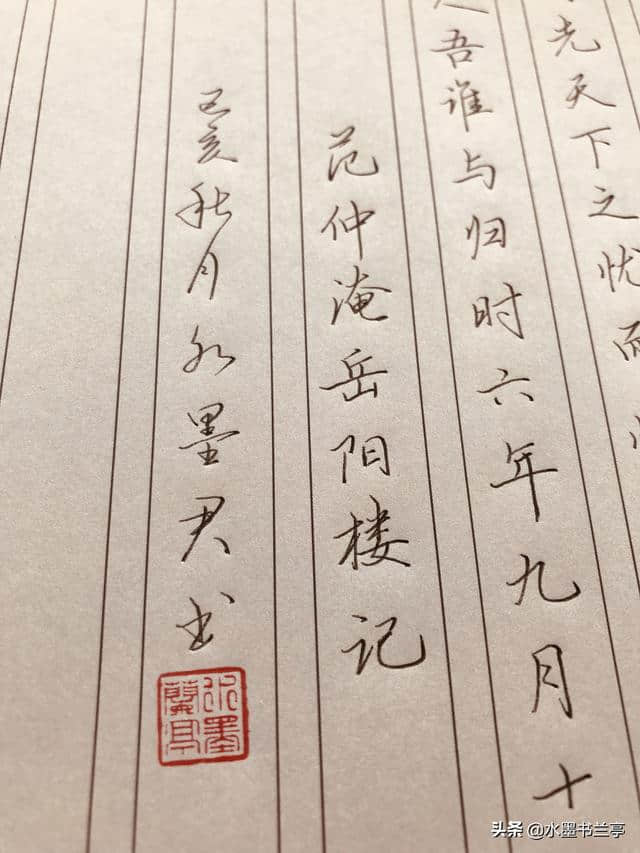 先天下之忧而
吾谁与归时六年九月十
范仲淹岳阳楼记
己亥秋月水墨君书
水墨
兰亭
头条 @水墨书兰亭